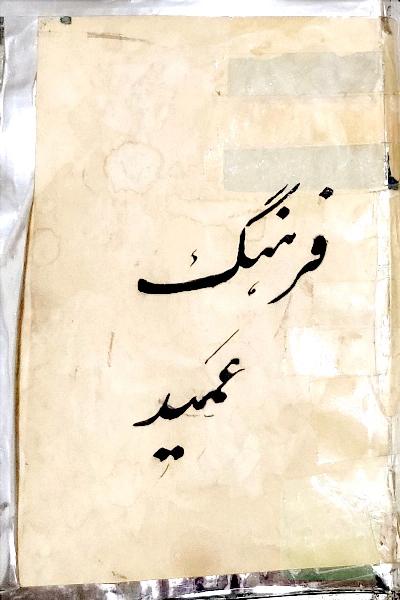 فرهنگ
عمید